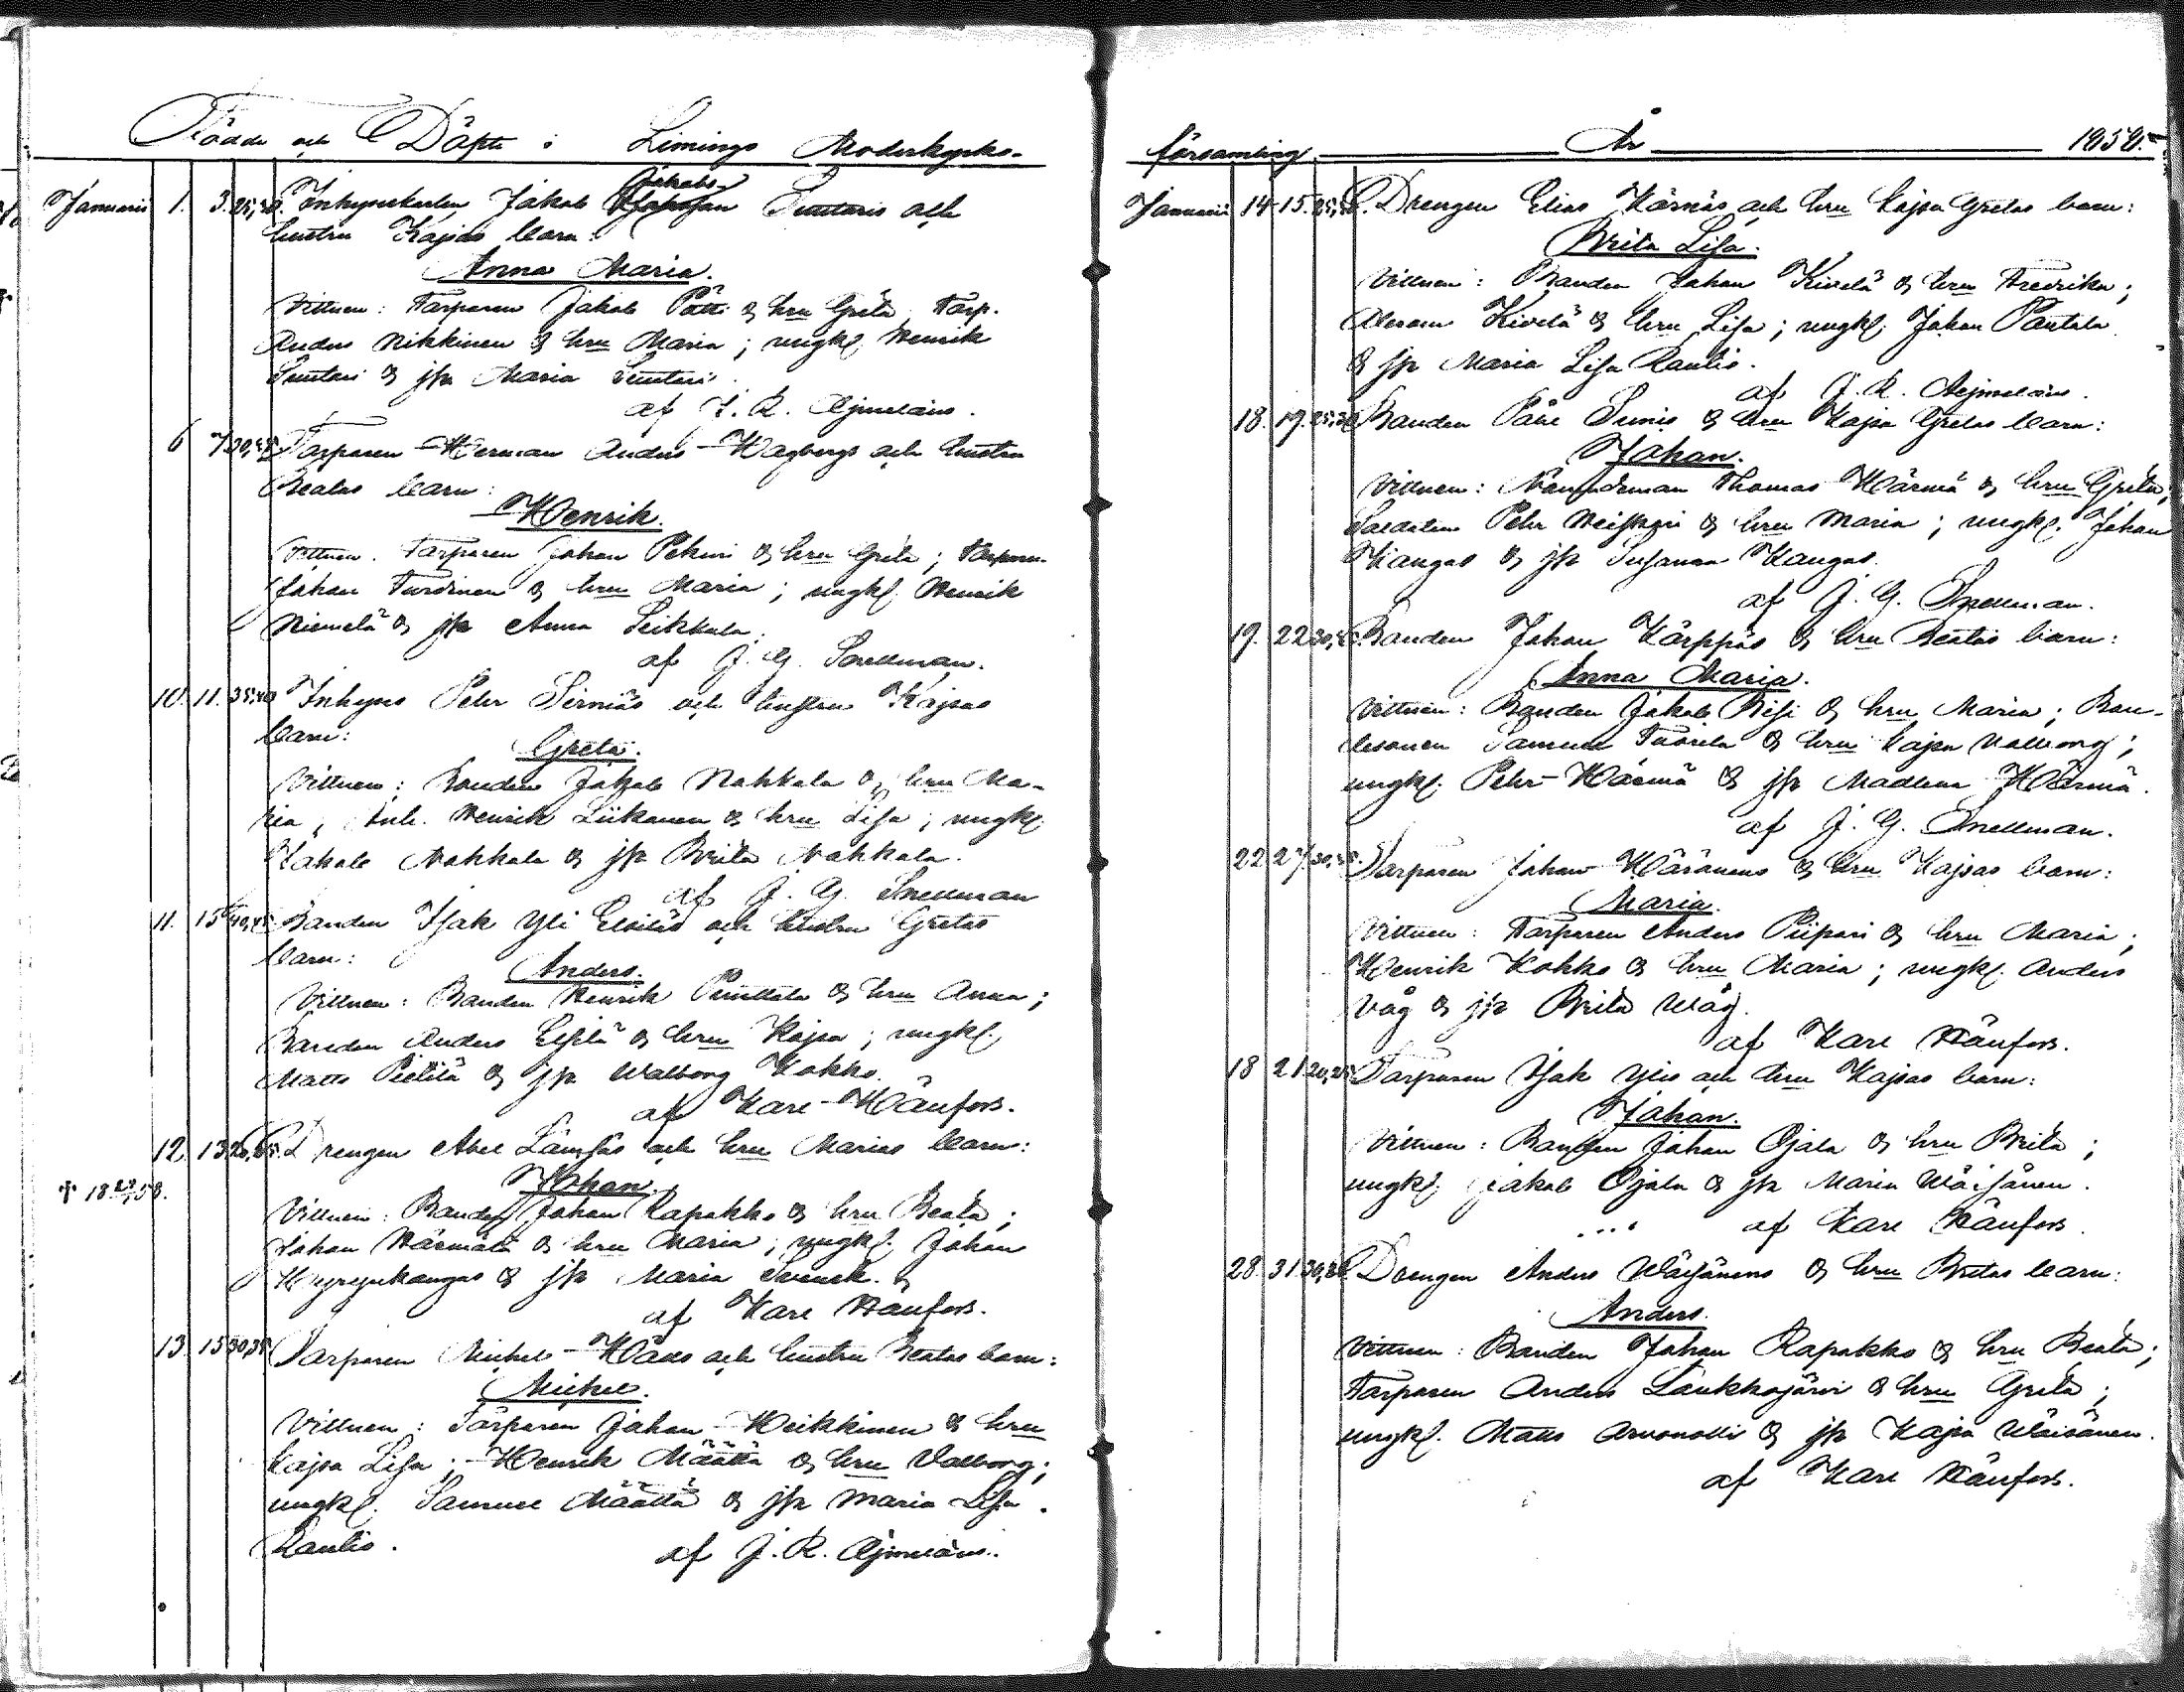 Födde och Döpte i Limingo Moderkyrko-
Januarii 1. 3. 25,30. Inhyseskarlen Jakob Jakobs Suutaris och
hustru Kajsas barn:
Anna Maria.
Vittnen: Torparen Jakob Pátti & hru Greta, Torp.
Anders Nikkinen & hru Maria; ungkl. Henrik
Suutari & jfr Maria Suutari.
af J. R. Aejmelæus.
6 7 Torparen Herman Anders Hagbergs och hustru
Beatas barn:
Henrik.
Vittnen. Torparen Johan Pekuri & hru Greta; Torparen
Johan Turdinen & hru Maria; ungkl. Henrik
Niemelä & jfr Anna Leikkala.
af J. G. Snellman.
10. 11. 35,40 Inhyses Pehr Sirniös och hustru Kajsas
barn:
Greta.
Vittnen: Bonden Jakob Nahkala & hru Ma-
ria, Inh. Henrik Liikanen & hru Lisa, ungkl
Jakob Nahkala & jfr Brita Nahkala.
af J. G. Snellman
11. 15 Bonden Isak Yli Elsiläs och hustru Gretas
barn:
Anders.
Vittnen: Bonden Henrik Penttala & hru Anna;
Bonden Anders Elsilä & hru Kajsa; ungkl.
Matts Pietilä & jfr Walborg Kokko.
af Karl Hänfors.
12. 13 Drengen Abel Lämsäs och hru Marias barn:
† 18 58.
Johan.
Vittnen: Bonden Johan Rapakko & hru Beata;
Johan Härmälä & hru Maria; ungkl. Johan
& jfr Maria
af Karl Hänfors.
13. 15 30,35 Torparen Michel Håås och hustru Beatas barn:
Michel.
Vittnen: Torparen Johan Heikkinen & hru
Kajsa Lisa; Henrik Määttä & hru Valborg;
ungkl. Samuel Määttä & jfr Maria Lisa
Rautio. af J. R. Aejmelæus.
församling År 1858.
Januarii 14 15. 25,30. Drengen Elias Kärnäs och hru Kajsa Gretas barn:
Brita Lisa.
Vittnen: Bonden Johan Kivelä & hru Fredrika;
Abram Kivelä & hru Lisa; ungkl. Johan Pantala
& jfr Maria Lisa Rautio.
af J. R. Aejmelæus.
18. 19. 25,30 Bonden Påhl Sunis & hru Kajsa Gretas barn:
Johan.
Vittnen: Nämndeman Thomas Härmä & hru Greta;
Soldaten Pehr & hru Maria; ungkl. Johan
Kangas & jfr Susanna Kangas.
af J. G. Snellman.
19. 22 Bonden Johan Kärppäs & hru Beatas barn:
Anna Maria.
Vittnen: Bonden Jakob & hru Maria; Bon-
desonen Samuel Tuorila & hru Kajsa Walborg;
ungkl. Pehr Härmä & jfr Madlena Härmä.
af J. G. Snellman.
22. 27. Torparen Johan Häränens & hru Kajsas barn:
Maria.
Vittnen: Torparen Anders Piipari & hru Maria;
Henrik Kokko & hru Maria; ungkl. Anders
Våg & jfr Brita Våg.
af Karl Hänfors.
18 21 20,25 Torparen Isak och hru Kajsas barn:
Johan.
Vittnen: Bonden Johan Ojala & hru Brita;
ungkl. Jakob Ojala & jfr Maria Wäisänen.
af Karl Hänfors.
28. 31. Drengen Anders Wäisänens & hru Britas barn:
Anders.
Vittnen: Bonden Johan Rapakko & hru Beata;
Torparen Anders Laukkajärvi & hru Greta;
ungkl. Matts & jfr Kajsa Wäisänen.
af Karl Hänfors.